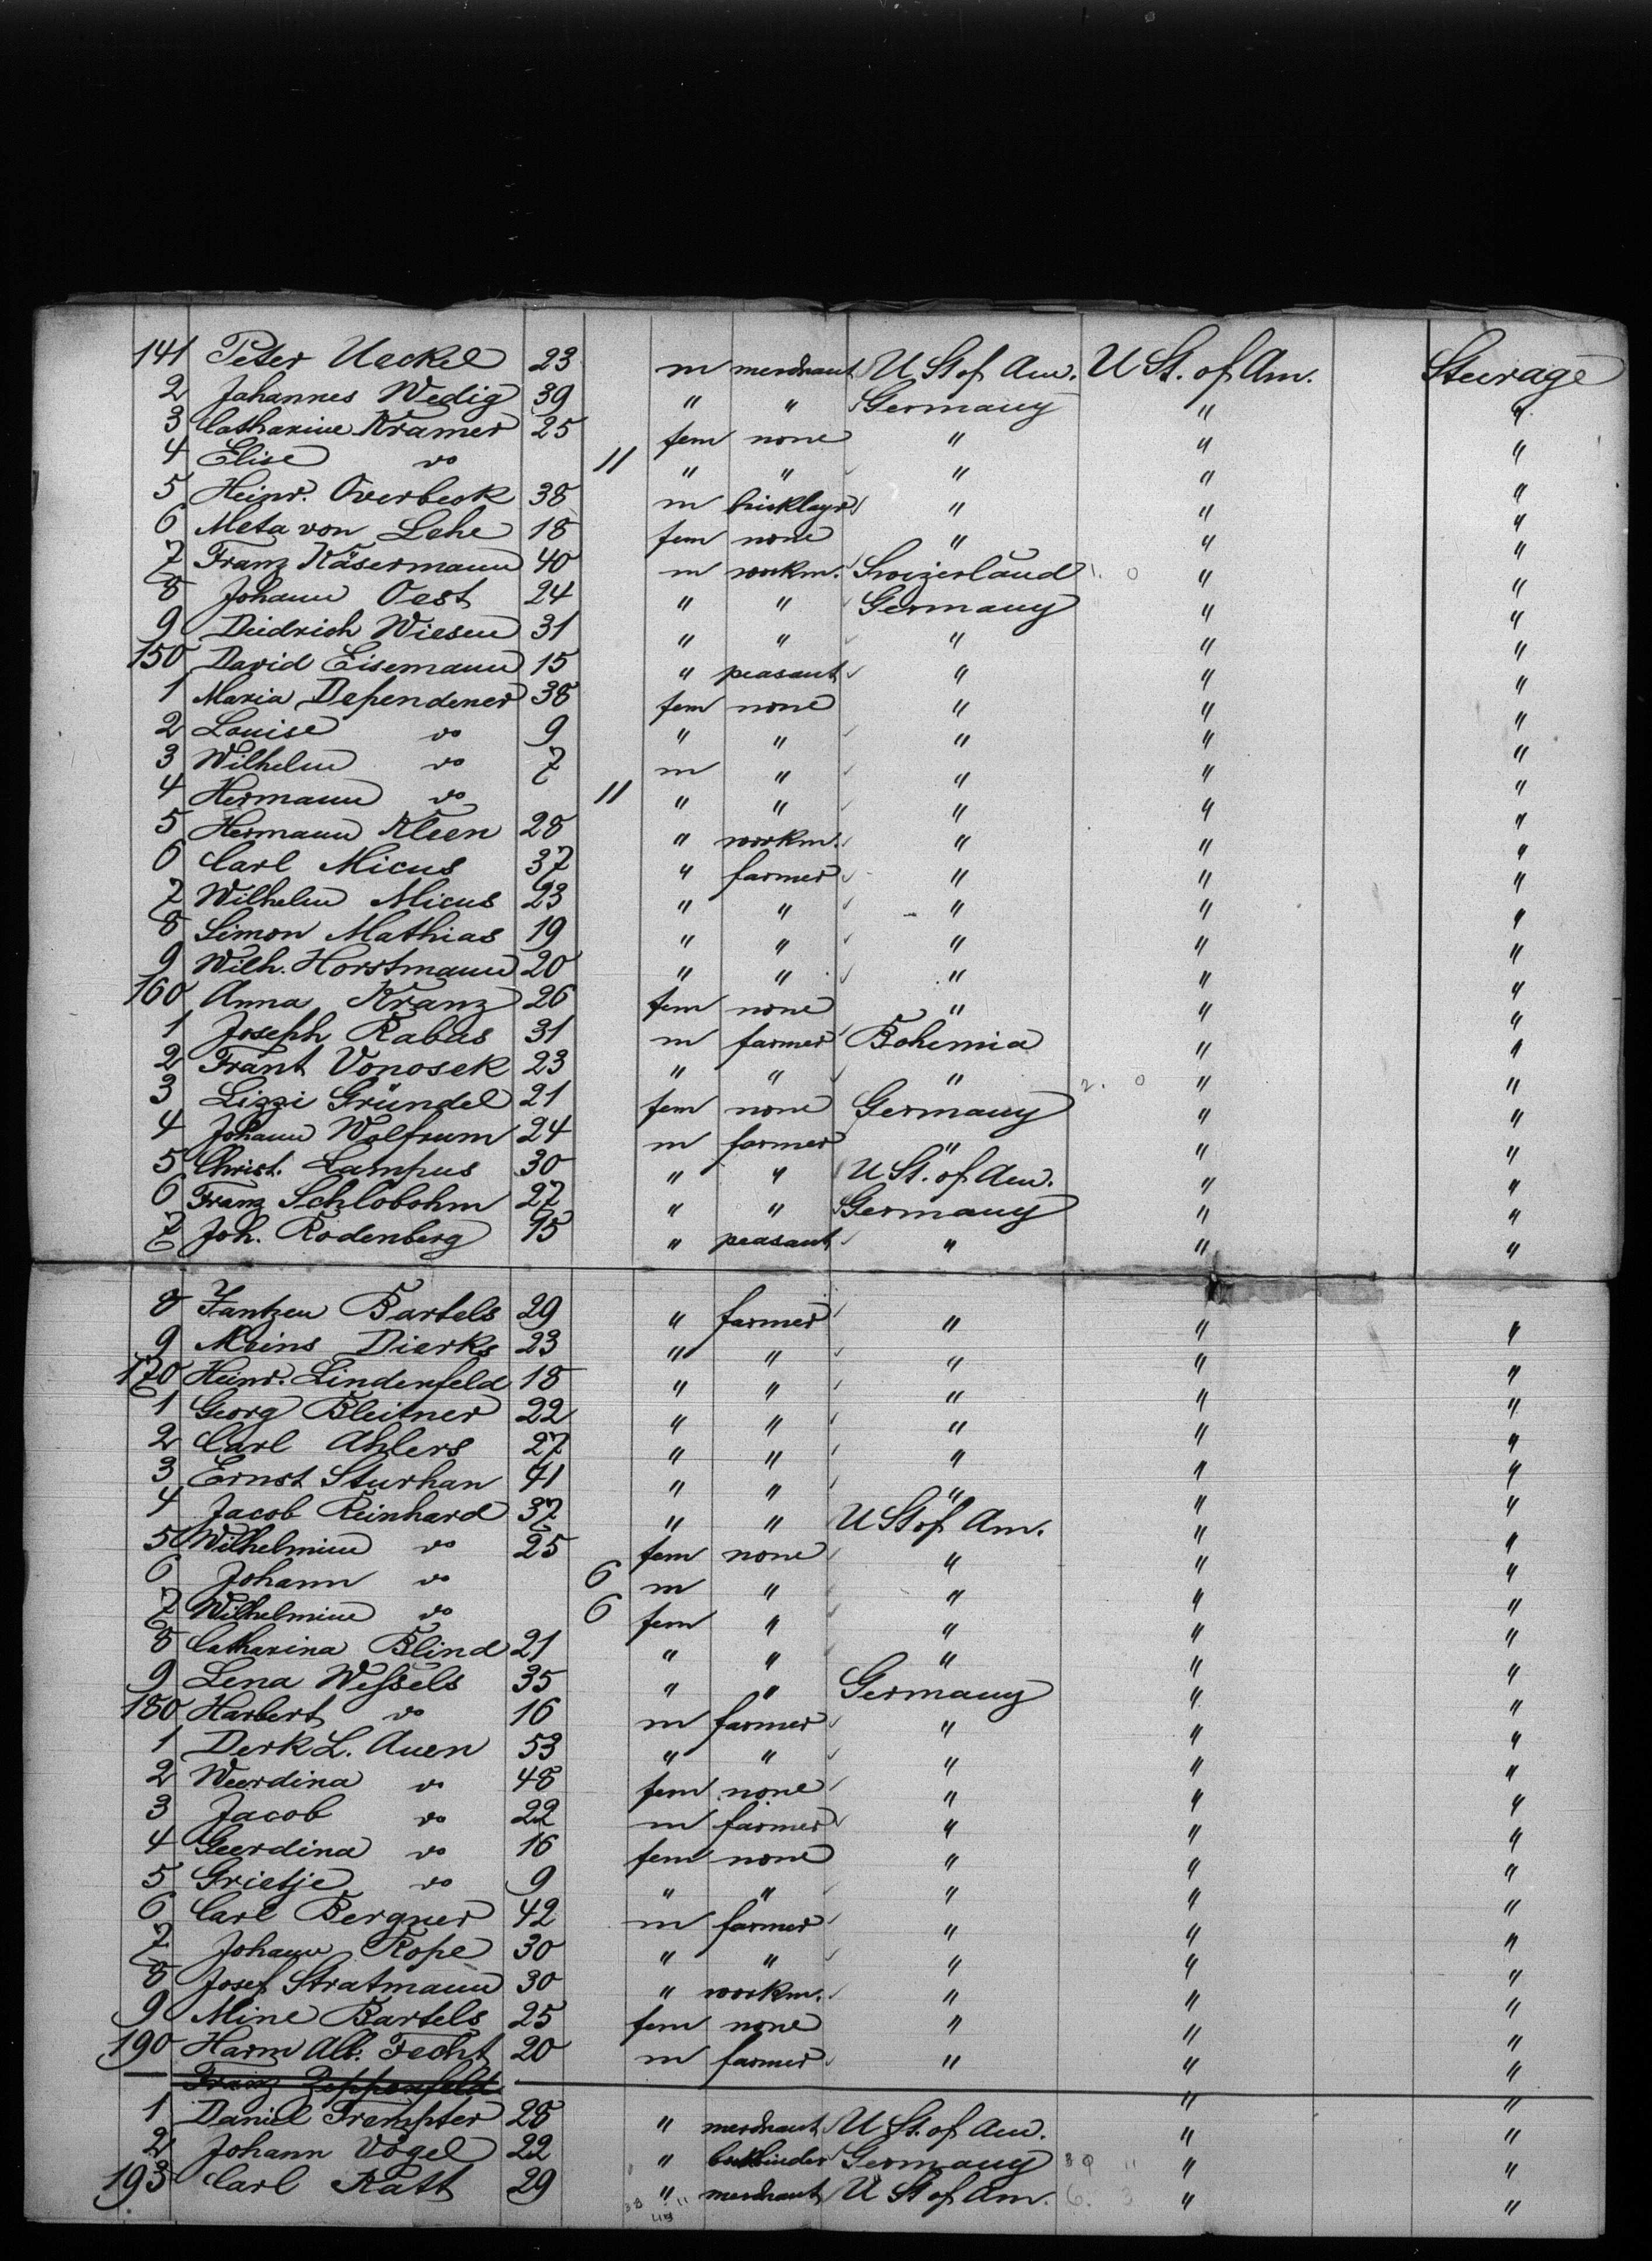 141 Peter Ueckel 23 m merchant U St of Am. U St. of Am. Steerage
2 Johannes Wedig 39 " " Germany " "
3 Catharine Kramer 25 fem none " " "
4 Elise do 11 " " " " "
5 Heinr. Overbeck 38 m bricklayer " " "
6 Meta von Lehe 18 fem none " " "
7 Franz Käsermann 40 m workm. Swizerland " "
8 Johann Oest 24 " " Germany " "
9 Diedrich Wiesen 31 " " " " "
150 David Eisemann 15 " peasant " " "
1 Maria Dependener 38 fem none " " "
2 Louise do 9 " " " " "
3 Wilhelm do 7 m " " " "
4 Hermann do 11 " " " " "
5 Hermann Kleen 28 " workm. " " "
6 Carl Micus 37 " farmer " " "
7 Wilhelm Micus 23 " " " " "
8 Simon Mathias 19 " " " " "
9 Wilh. Horstmann 20 " " " " "
160 Anna Kranz 26 fem none " " "
1 Joseph Rabas 31 m farmer Bohemia " "
2 Frant Vonosek 23 " " " " "
3 Lizzi Gründel 21 fem none Germany " "
4 Johann Wolfrum 24 m farmer " " "
5 Christ. Lampus 30 " " U St. of Am. " "
6 Franz Schlobohm 27 " " Germany " "
7 Joh. Rodenberg 15 " peasant " " "
8 Jantzen Bartels 29 " farmer " " "
9 Meins Dierks 23 " " " " "
170 Heinr. Lindenfeld 18 " " " " "
1 Georg Bleitner 22 " " " " "
2 Carl Ahlers 27 " " " " "
3 Ernst Sturhan 41 " " " " "
4 Jacob Reinhard 37 " " U St of Am. " "
5 Wilhelmine do 25 fem none " " "
6 Johann do 6 m " " " "
7 Wilhelmine do 6 fem " " " "
8 Catharina Blind 21 " " " " "
9 Lena Weſsels 35 " " Germany " "
180 Harbert do 16 m farmer " " "
1 Derk L. Auen 53 " " " " "
2 Weerdina do 48 fem none " " "
3 Jacob do 22 m farmer " " "
4 Geerdina do 16 fem none " " "
5 Grietje do 9 " " " " "
6 Carl Bergner 42 m farmer " " "
7 Johann Rope 30 " " " " "
8 Josef Stratmann 30 " workm. " " "
9 Mine Bartels 25 fem none " " "
190 Harm Alb. Fecht 20 m farmer " " "
Franz Zeppenfeld " "
1 Daniel Trempter 28 " merchant U St. of Am. " "
2 Johann Vogel 22 " bookbinder Germany " "
193 Carl Katt 29 " merchant U St of Am. " "